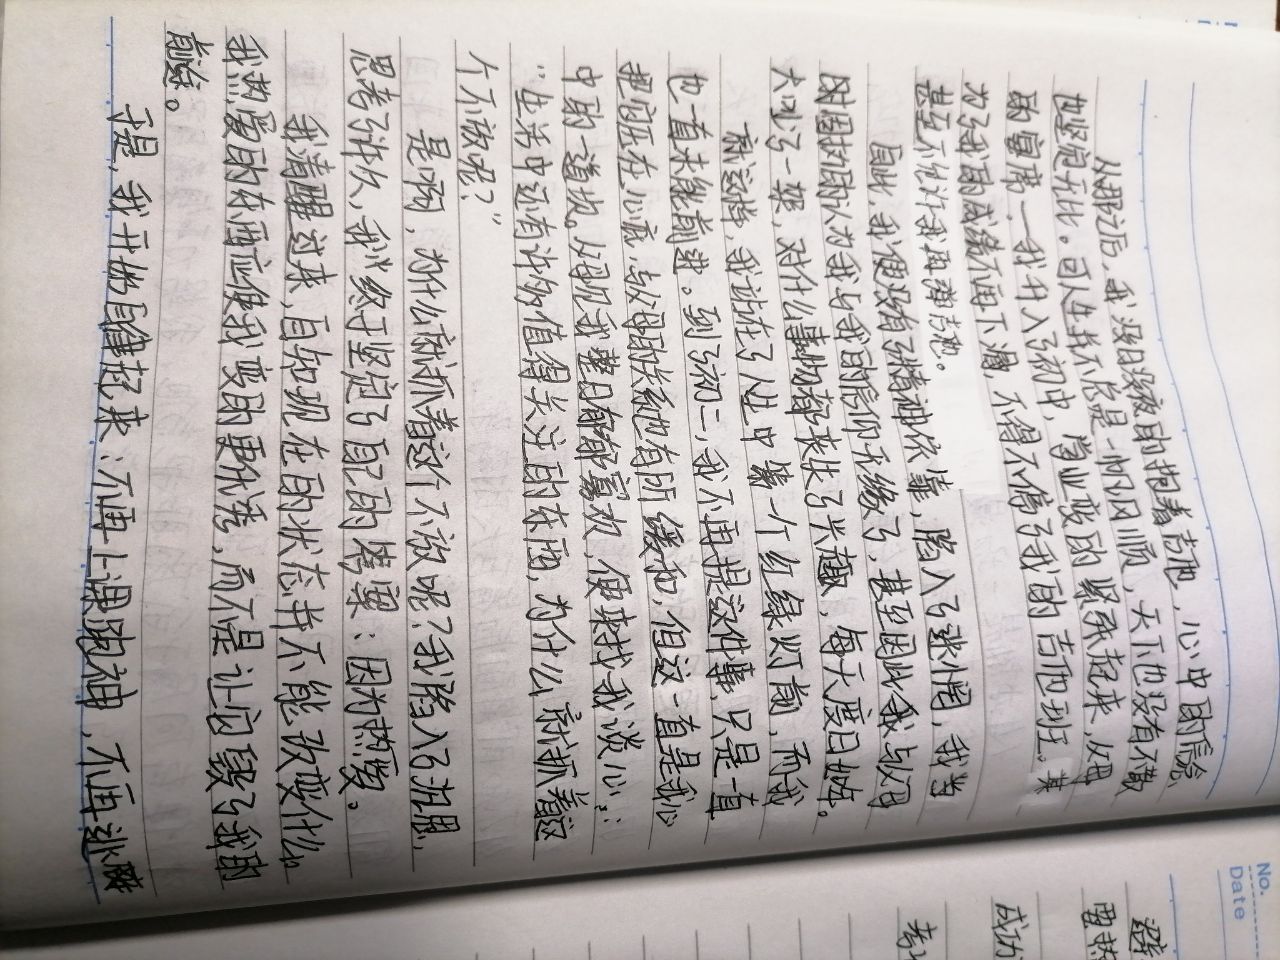 从那之后，我没日没夜的抱着吉他，心中的信念
也坚定无比。可人生并不总是一帆风顺，天下也没有不散
的宴席——我升入了初中，学业变的紧张起来，父母
为了我的成绩不再下滑，不得不停了我的吉他班。某
甚至不允许我再弹吉他。
自此，我便没有了精神依靠，陷入了迷惘，我当
时固执的认为我与我的信仰无缘了，甚至因此我与父母
大吵了一架，对什么事物都丧失了兴趣，每天度日如年。
就这样，我站在了人生中第一个红绿灯前，而我
也一直未能前进。到了初二，我不再提这件事，只是一直
把它压在心底，与父母的关系也有所缓和，但这一直是我心
中的一道坎。父母见我整日郁郁寡欢，便来找我谈心：
“生活中还有许多值得关注的东西，为什么就抓着这
个不放呢？”
是啊，为什么就抓着这个不放呢？我陷入了沉思，
思考了许久，我终于坚定了自己的答案：因为热爱。
我清醒过来，自知现在的状态并不能改变什么。
我热爱的东西应使我变的更优秀，而不是让它毁了我的
前途。
于是，我开始自律起来：不再上课跑神，不再逃避
No.
Date
成功